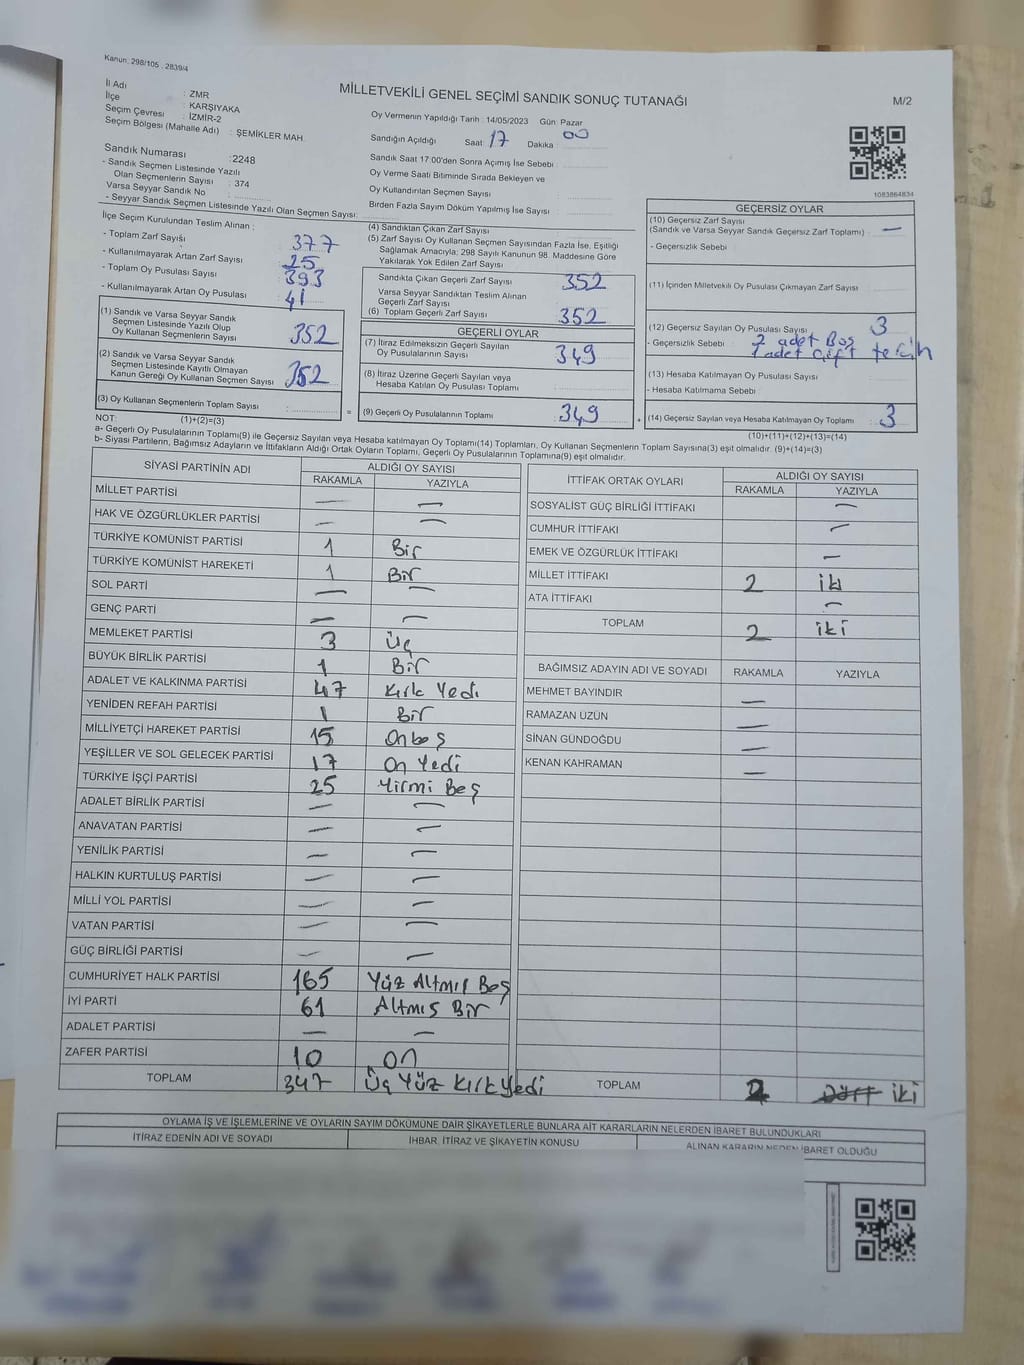 Kanun: 298/105 , 2839/4
MİLLETVEKİLİ GENEL SEÇİMİ SANDIK SONUÇ TUTANAĞI
M/2
İl Adı : ZMR
İlçe : KARŞIYAKA
Seçim Çevresi : İZMİR-2
Seçim Bölgesi (Mahalle Adı) : ŞEMİKLER MAH.
Sandık Numarası :2248
- Sandık Seçmen Listesinde Yazılı
Olan Seçmenlerin Sayısı : 374
Varsa Seyyar Sandık No :
- Seyyar Sandık Seçmen Listesinde Yazılı Olan Seçmen Sayısı:
Oy Vermenin Yapıldığı Tarih : 14/05/2023 Gün: Pazar
Sandığın Açıldığı Saat: 17 Dakika : 00
Sandık Saat 17:00'den Sonra Açımış İse Sebebi :
Oy Verme Saati Bitiminde Sırada Bekleyen ve
Oy Kullandırılan Seçmen Sayısı
Birden Fazla Sayım Döküm Yapılmış İse Sayısı :
1083864834
İlçe Seçim Kurulundan Teslim Alınan :
- Toplam Zarf Sayısı : 377
- Kullanılmayarak Artan Zarf Sayısı : 25
- Toplam Oy Pusulası Sayısı : 393
- Kullanılmayarak Artan Oy Pusulası : 41
(1) Sandık ve Varsa Seyyar Sandık
Seçmen Listesinde Yazılı Olup
Oy Kullanan Seçmenlerin Sayısı 352
(2) Sandık ve Varsa Seyyar Sandık
Seçmen Listesinde Kayıtlı Olmayan
Kanun Gereği Oy Kullanan Seçmen Sayısı 352
(3) Oy Kullanan Seçmenlerin Toplam Sayısı :
(1)+(2)=(3)
(4) Sandıktan Çıkan Zarf Sayısı
(5) Zarf Sayısı Oy Kullanan Seçmen Sayısından Fazla İse, Eşitliği
Sağlamak Amacıyla; 298 Sayılı Kanunun 98. Maddesine Göre
Yakılarak Yok Edilen Zarf Sayısı
Sandıkta Çıkan Geçerli Zarf Sayısı : 352
Varsa Seyyar Sandıktan Teslim Alınan
Geçerli Zarf Sayısı
(6) Toplam Geçerli Zarf Sayısı : 352
GEÇERLİ OYLAR
(7) İtiraz Edilmeksizin Geçerli Sayılan
Oy Pusulalarının Sayısı : 349
(8) İtiraz Üzerine Geçerli Sayılan veya
Hesaba Katılan Oy Pusulası Toplamı
= (9) Geçerli Oy Pusulalarının Toplamı : 349 +
GEÇERSİZ OYLAR
(10) Geçersiz Zarf Sayısı
(Sandık ve Varsa Seyyar Sandık Geçersiz Zarf Toplamı) : —
- Geçersizlik Sebebi :
(11) İçinden Milletvekili Oy Pusulası Çıkmayan Zarf Sayısı
(12) Geçersiz Sayılan Oy Pusulası Sayısı : 3
- Geçersizlik Sebebi : 2 adet Boş
1 adet çift tercih
(13) Hesaba Katılmayan Oy Pusulası Sayısı
- Hesaba Katılmama Sebebi
(14) Geçersiz Sayılan veya Hesaba Katılmayan Oy Toplamı : 3
(10)+(11)+(12)+(13)=(14)
NOT:
a- Geçerli Oy Pusulalarının Toplamı(9) ile Geçersiz Sayılan veya Hesaba katılmayan Oy Toplamı(14) Toplamları, Oy Kullanan Seçmenlerin Toplam Sayısına(3) eşit olmalıdır. (9)+(14)=(3)
b- Siyasi Partilerin, Bağımsız Adayların ve İttifakların Aldığı Ortak Oyların Toplamı, Geçerli Oy Pusulalarının Toplamına(9) eşit olmalıdır.
SİYASİ PARTİNİN ADI ALDIĞI OY SAYISI
RAKAMLA YAZIYLA
MİLLET PARTİSİ — —
HAK VE ÖZGÜRLÜKLER PARTİSİ — —
TÜRKİYE KOMÜNİST PARTİSİ 1 Bir
TÜRKİYE KOMÜNİST HAREKETİ 1 Bir
SOL PARTİ — —
GENÇ PARTİ — —
MEMLEKET PARTİSİ 3 üç
BÜYÜK BİRLİK PARTİSİ 1 Bir
ADALET VE KALKINMA PARTİSİ 47 Kırk Yedi
YENİDEN REFAH PARTİSİ 1 Bir
MİLLİYETÇİ HAREKET PARTİSİ 15 Onbeş
YEŞİLLER VE SOL GELECEK PARTİSİ 17 On Yedi
TÜRKİYE İŞÇİ PARTİSİ 25 Yirmi Beş
ADALET BİRLİK PARTİSİ — —
ANAVATAN PARTİSİ — —
YENİLİK PARTİSİ — —
HALKIN KURTULUŞ PARTİSİ — —
MİLLİ YOL PARTİSİ — —
VATAN PARTİSİ — —
GÜÇ BİRLİĞİ PARTİSİ — —
CUMHURİYET HALK PARTİSİ 165 Yüz Altmış Beş
İYİ PARTİ 61 Altmış Bir
ADALET PARTİSİ — —
ZAFER PARTİSİ 10 on
TOPLAM 347 Üç Yüz Kırk Yedi
İTTİFAK ORTAK OYLARI ALDIĞI OY SAYISI
RAKAMLA YAZIYLA
SOSYALİST GÜÇ BİRLİĞİ İTTİFAKI —
CUMHUR İTTİFAKI —
EMEK VE ÖZGÜRLÜK İTTİFAKI —
MİLLET İTTİFAKI 2 iki
ATA İTTİFAKI —
TOPLAM 2 iki
BAĞIMSIZ ADAYIN ADI VE SOYADI RAKAMLA YAZIYLA
MEHMET BAYINDIR —
RAMAZAN UZÜN —
SİNAN GÜNDOĞDU —
KENAN KAHRAMAN —
TOPLAM 2 Dört iki
OYLAMA İŞ VE İŞLEMLERİNE VE OYLARIN SAYIM DÖKÜMÜNE DAİR ŞİKAYETLERLE BUNLARA AİT KARARLARIN NELERDEN İBARET BULUNDUKLARI
İTİRAZ EDENİN ADI VE SOYADI İHBAR, İTİRAZ VE ŞİKAYETİN KONUSU ALINAN KARARIN NEDEN İBARET OLDUĞU